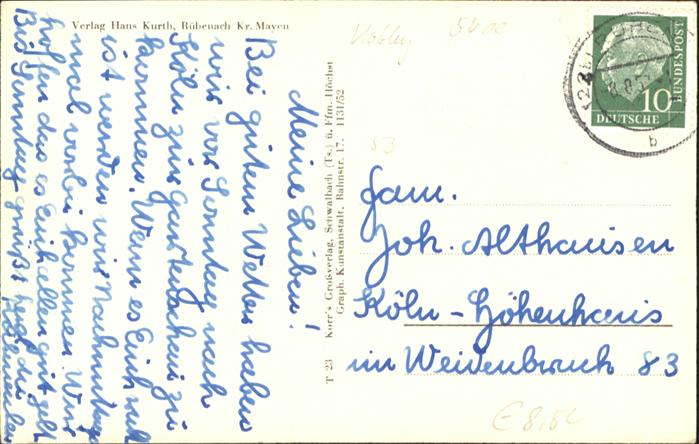 Verlag Hans Kurth, Rübenach Kr. Mayen
Meine Lieben!
Bei gutem Wetter haben
wir vor Sonntag nach
Köln zur Gartenschau zu
kommen. Wenn es Euch recht
ist werden wir Nachmittags
mal vorbei kommen. Wir
hoffen das es Euch allen gut geht
Bis Sonntag grüßt
T 23 Korr's Großverlag, Schwalbach (Ts.) ü. Ffm. Höchst
Graph. Kunstanstalt, Bahnstr. 17. 1131/52
5400
53
DEUTSCHE
BUNDESPOST
10
b
Fam.
Joh. Althausen
Köln-Höhenhaus
im Weidenbruch 83